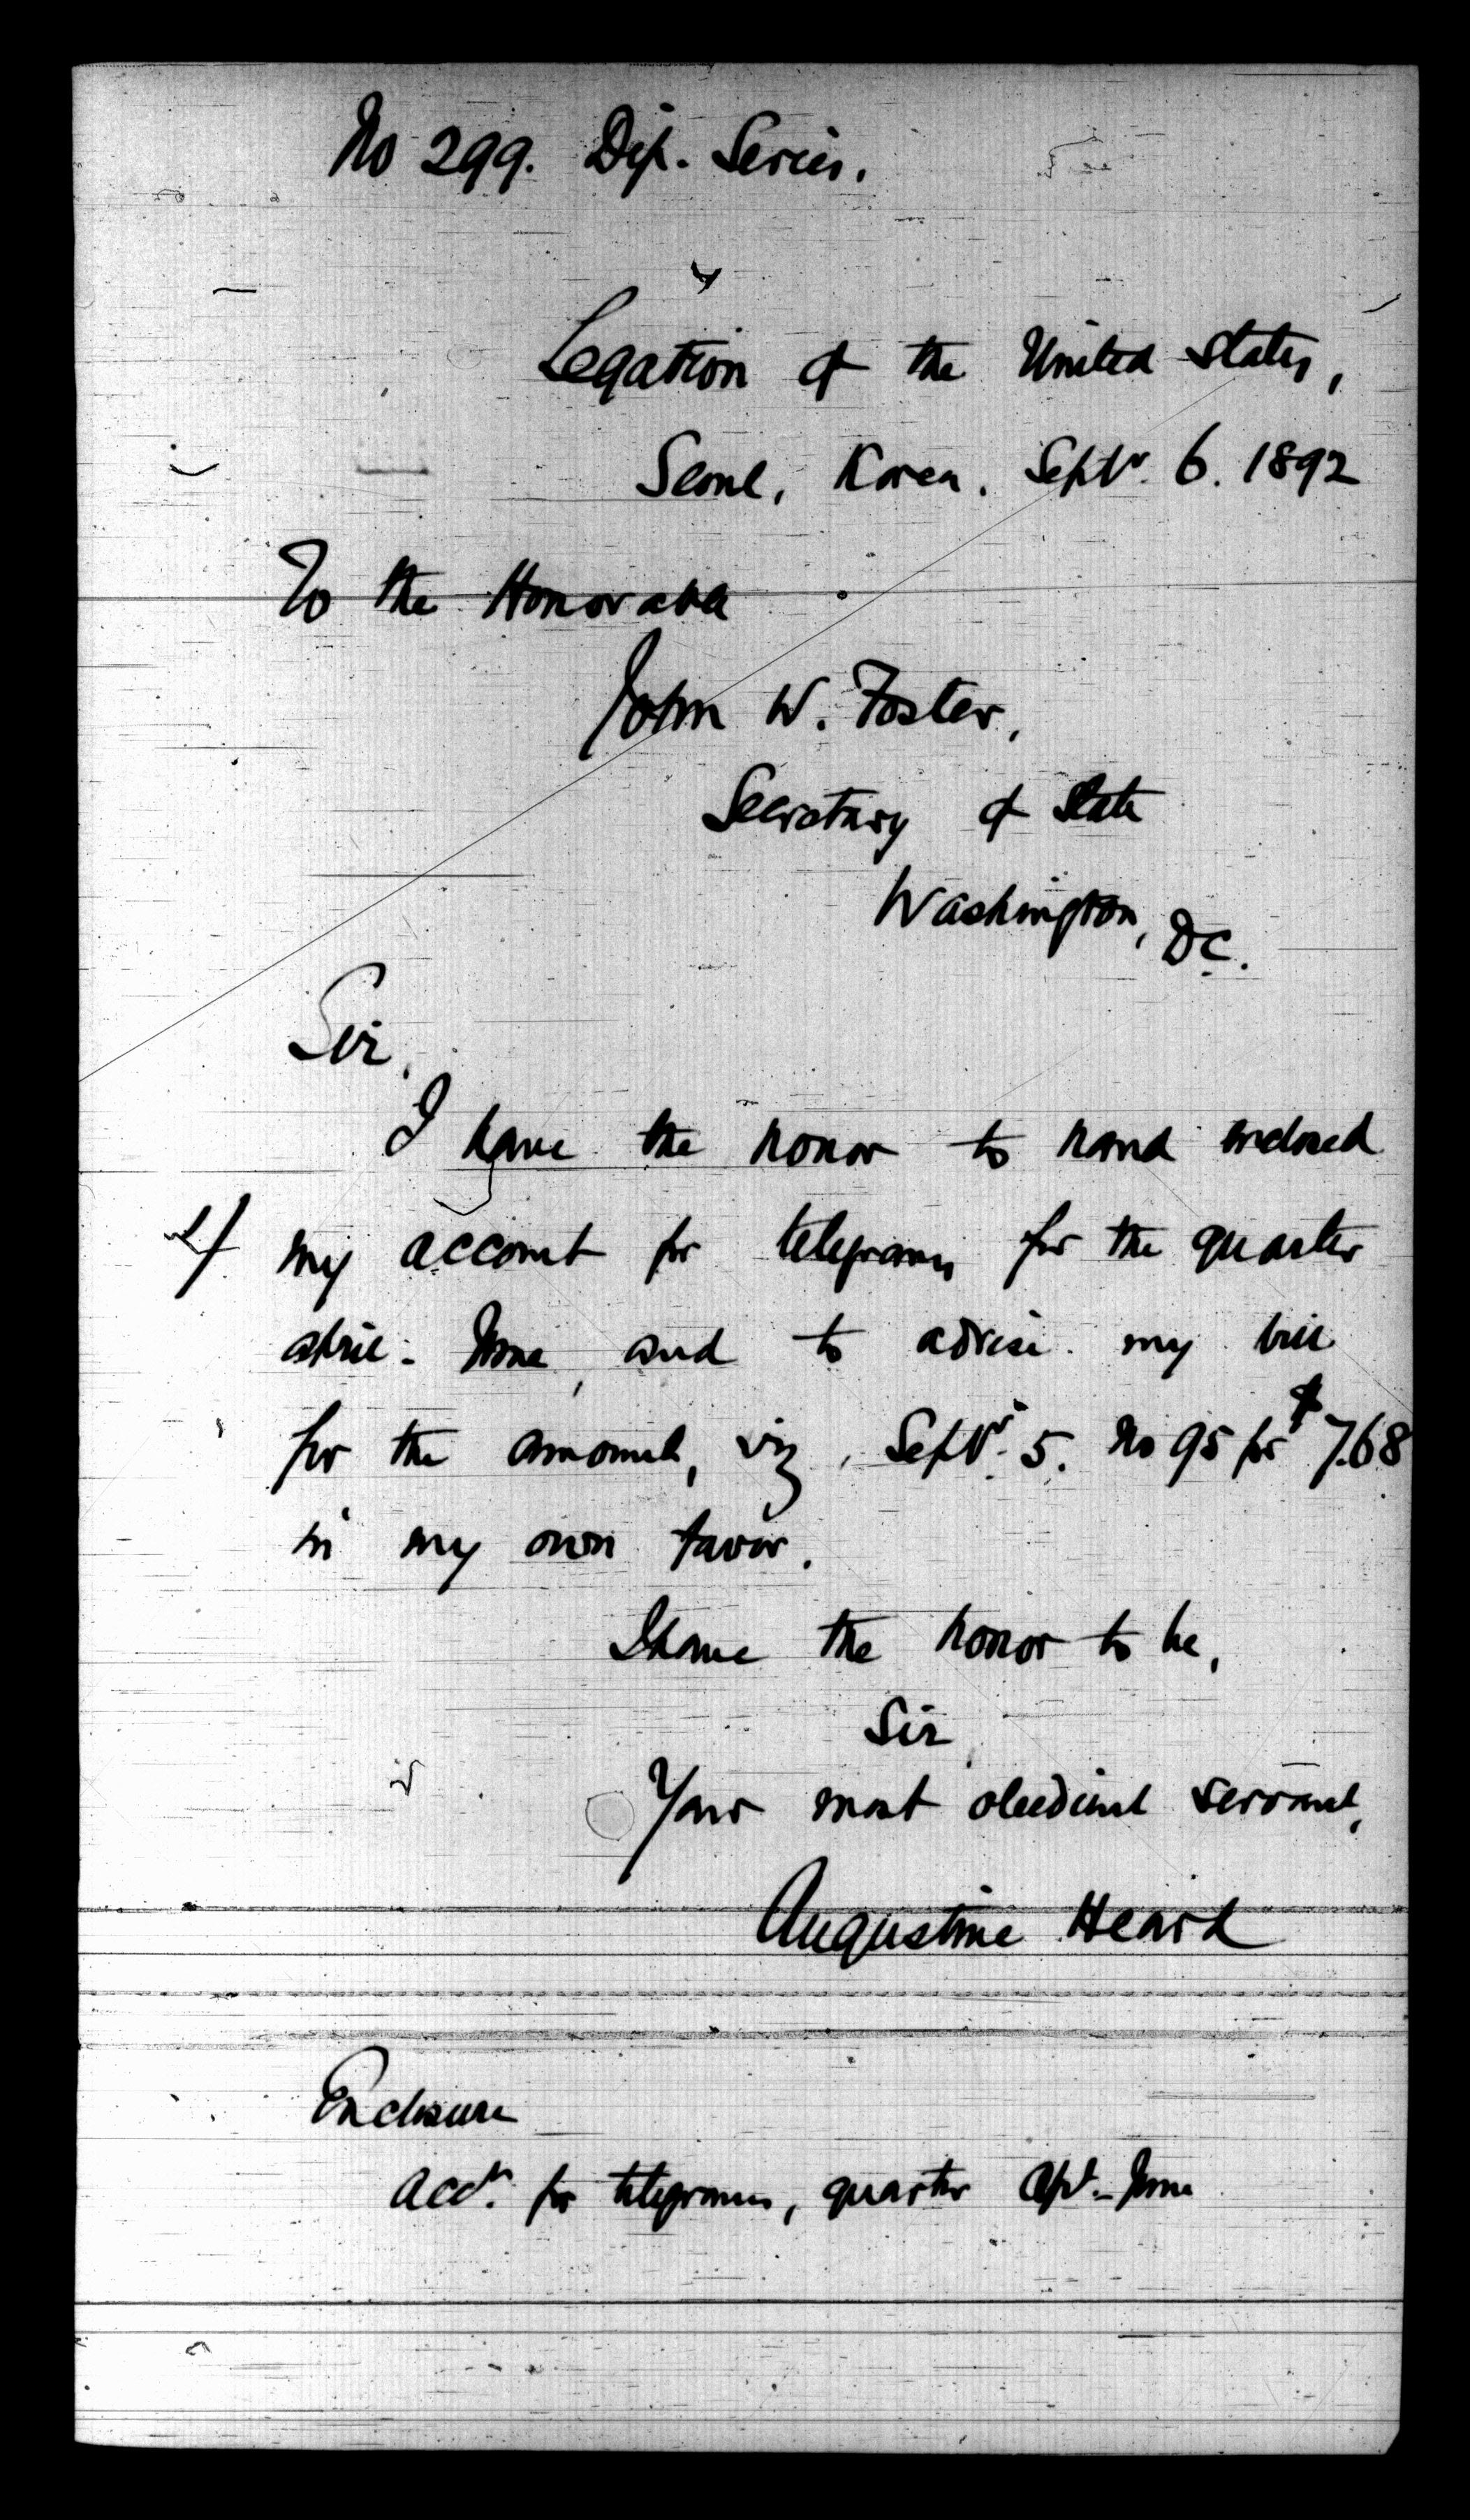 No 299. Dip. Series.
Legation of the United States,
Seoul, Korea. Septr. 6. 1892
To the Honorable
John W. Foster,
Secretary of State
Washington, D.C.
Sir,
I have the honor to hand enclosed
my account for telegrams for the quarter
April-June, and to advise my bill
for the amount, viz, Septr. 5. No 95 for $7.68
in my own favor.
I have the honor to be,
Sir
Your most obedient servant,
Augustine Heard
Enclosure
Acct. for telegrams, quarter Apl-June